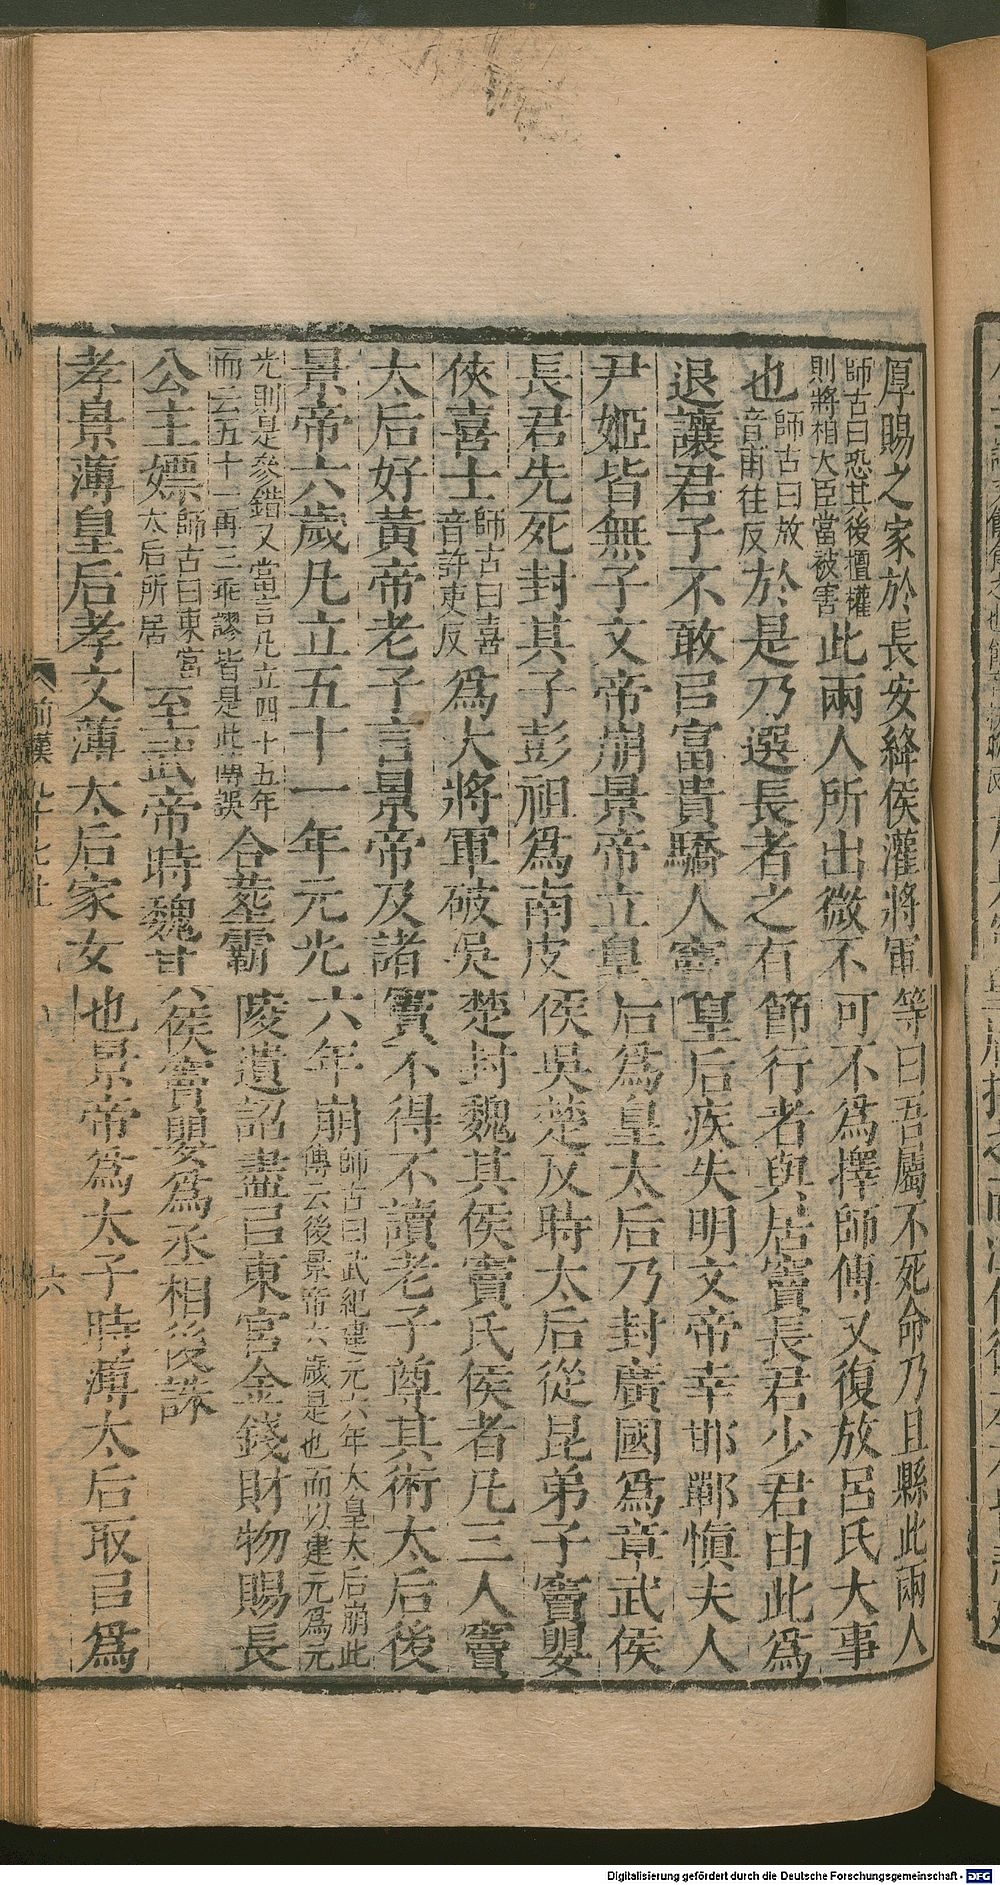 厚賜之家於長安絳侯灌將軍等曰吾屬不死命乃且縣此兩人
師古曰恐其後擅權則將相大臣當被害此兩人所出微不可不爲擇師傅又復放呂氏大事
也師古曰放音甫往反於是乃選長者之有節行者與居竇長君少君由此爲
退讓君子不敢㠯富貴驕人竇皇后疾失明文帝幸邯鄲愼夫人
尹姬皆無子文帝崩景帝立皇后爲皇太后乃封廣國爲章武侯
長君先死封其子彭祖爲南皮侯吳楚反時太后從昆弟子竇嬰
俠喜士師古曰喜音許吏反爲大將軍破吳楚封魏其侯竇氏侯者凡三人竇
太后好黃帝老子言景帝及諸竇不得不讀老子尊其術太后後
景帝六歲凡立五十一年元光六年崩師古曰武紀建元六年太皇太后崩此傳云後景帝六歲是也而以建元爲元
光則是參錯又當言凡立四十五年而云五十一再三乖謬皆是此傳誤合葬霸陵遺詔盡㠯東宮金錢財物賜長
公主嫖師古曰東宮太后所居至武帝時魏其侯竇嬰爲丞相後誅
孝景薄皇后孝文薄太后家女也景帝爲太子時薄太后取㠯爲
前漢 九十七上 六
Digitalisierung gefördert durch die Deutsche Forschungsgemeinschaft - DFG